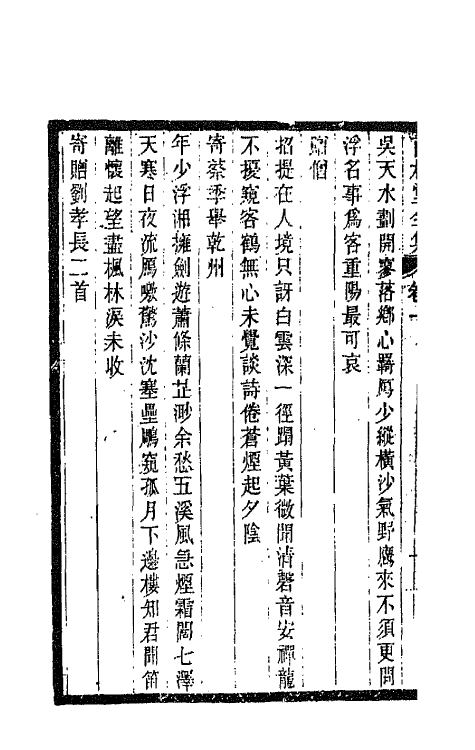 卷一
吳天水劃開寥落鄉心羇雁少縱橫沙氣野鷹來不須更問
浮名事爲客重陽最可哀
贈僧
招提在人境只訝白雲深一徑蹋黃葉微聞清磬音安禪龍
不擾窺客鶴無心未覺談詩倦蒼煙起夕陰
寄蔡季舉乾州
年少浮湘擁劍遊蕭條蘭芷渺余愁五溪風急煙霜闊七澤
天寒日夜流鴈嗷驚沙沈塞壘鵰窺孤月下邊樓知君聞笛
離懷起望盡楓林淚未收
寄贈劉孝長二首